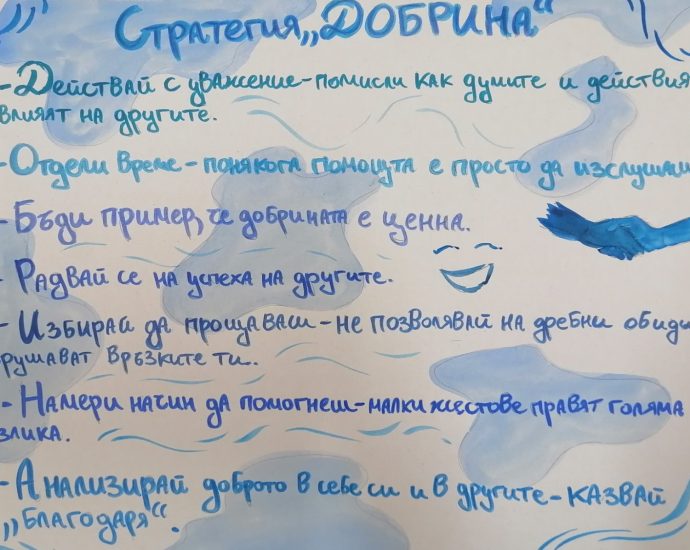 Стратегия „ДОБРИНА“
- Действай с уважение - помисли как думите и действия
влияят на другите.
- Отдели време - понякога помощта е просто да изслушаш
- Бъди пример, че добрината е ценна.
- Радвай се на успеха на другите.
- Избирай да прощаваш - не позволявай на дребни обиди
рушават връзките ти..
- Намери начин да помогнеш - малки жестове правят голяма
злика.
- Анализирай доброто в себе си и в другите - казвай
„Благодаря“.